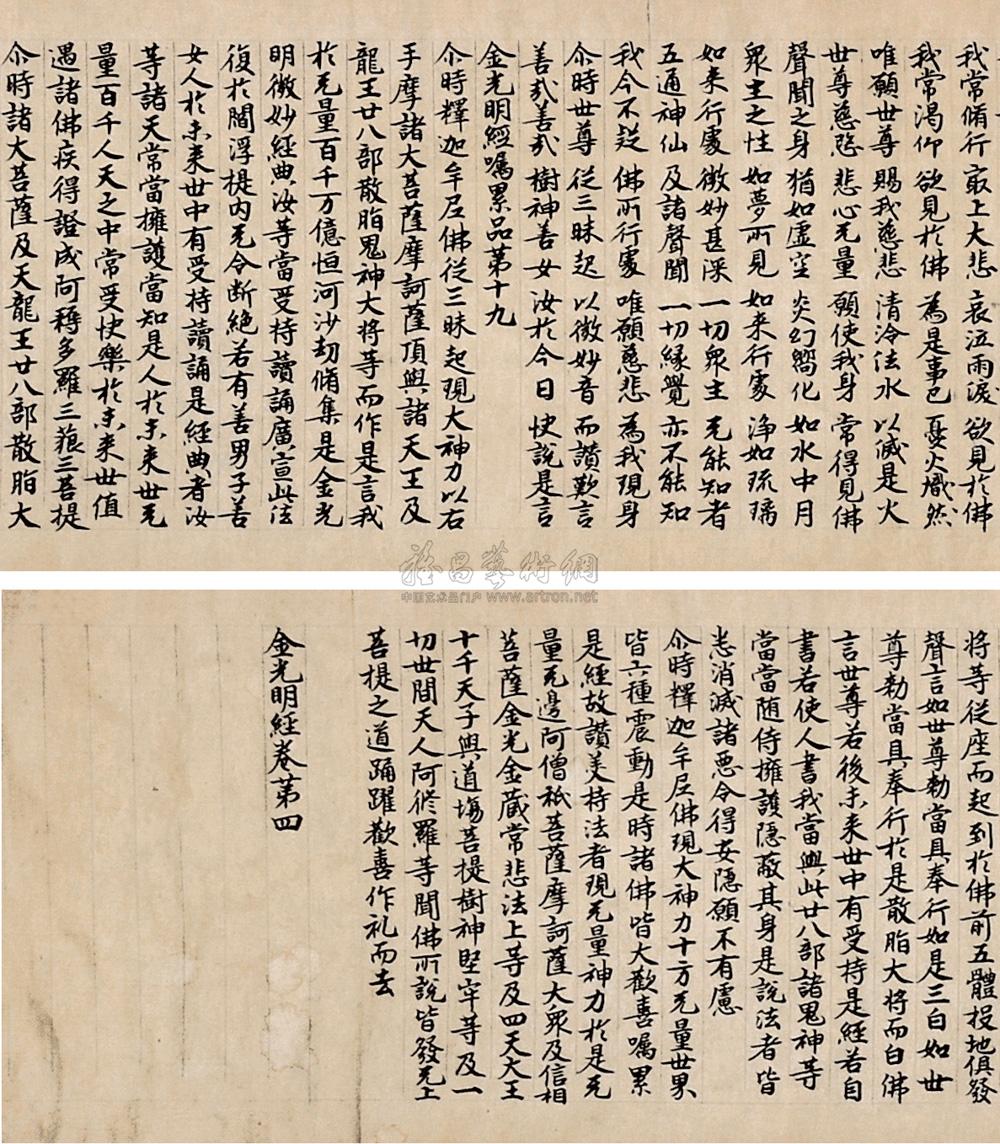 我常脩行 㝡上大悲 哀泣雨淚 欲見於佛
我常渴仰 欲見於佛 為是事已 憂火熾然
唯願世尊 賜我慈悲 清泠法水 以滅是火
世尊慈愍 悲心无量 願使我身 常得見佛
聲聞之身 猶如虛空 炎幻嚮化 如水中月
衆生之性 如夢所見 如来行處 浄如琉璃
如来行處 微妙甚深 一切衆生 无能知者
五通神仙 及諸聲聞 一切緣覺 亦不能知
我今不疑 佛所行處 唯願慈悲 為我現身
尒時世尊 従三昧起 以微妙音 而讃歎言
善哉善哉 樹神善女 汝於今日 快說是言
金光明經囑累品第十九
尒時釋迦牟尼佛従三昧起現大神力以右
手摩諸大菩薩摩訶薩頂與諸天王及
龍王廿八部散脂鬼神大将等而作是言我
於无量百千万億恒河沙劫脩集是金光
明微妙經典汝等當受持讀誦廣宣此法
復於閻浮提内无令断絶若有善男子善
女人於未来世中有受持讀誦是經典者汝
等諸天常當擁護當知是人於未来世无
量百千人天之中常受快樂於未来世值
遇諸佛疾得證成阿耨多羅三藐三菩提
尒時諸大菩薩及天龍王廿八部散脂大
将等従座而起到於佛前五體投地俱發
聲言如世尊勅當具奉行如是三白如世
尊勅當具奉行於是散脂大将而白佛
言世尊若後未来世中有受持是經若自
書若使人書我當與此廿八部諸鬼神等
當當随侍擁護隠蔽其身是說法者皆
悉消滅諸悪令得安隠願不有慮
尒時釋迦牟尼佛現大神力十方无量世界
皆六種震動是時諸佛皆大歡喜囑累
是經故讃美持法者現无量神力於是无
量无邊阿僧祇菩薩摩訶薩大衆及信相
菩薩金光金蔵常悲法上等及四天大王
十千天子與道場菩提樹神堅牢等及一
切世間天人阿修羅等聞佛所說皆發无上
菩提之道踊躍歡喜作礼而去
金光明經卷苐四
雅昌藝術網
中国艺术品门户 www.artron.net